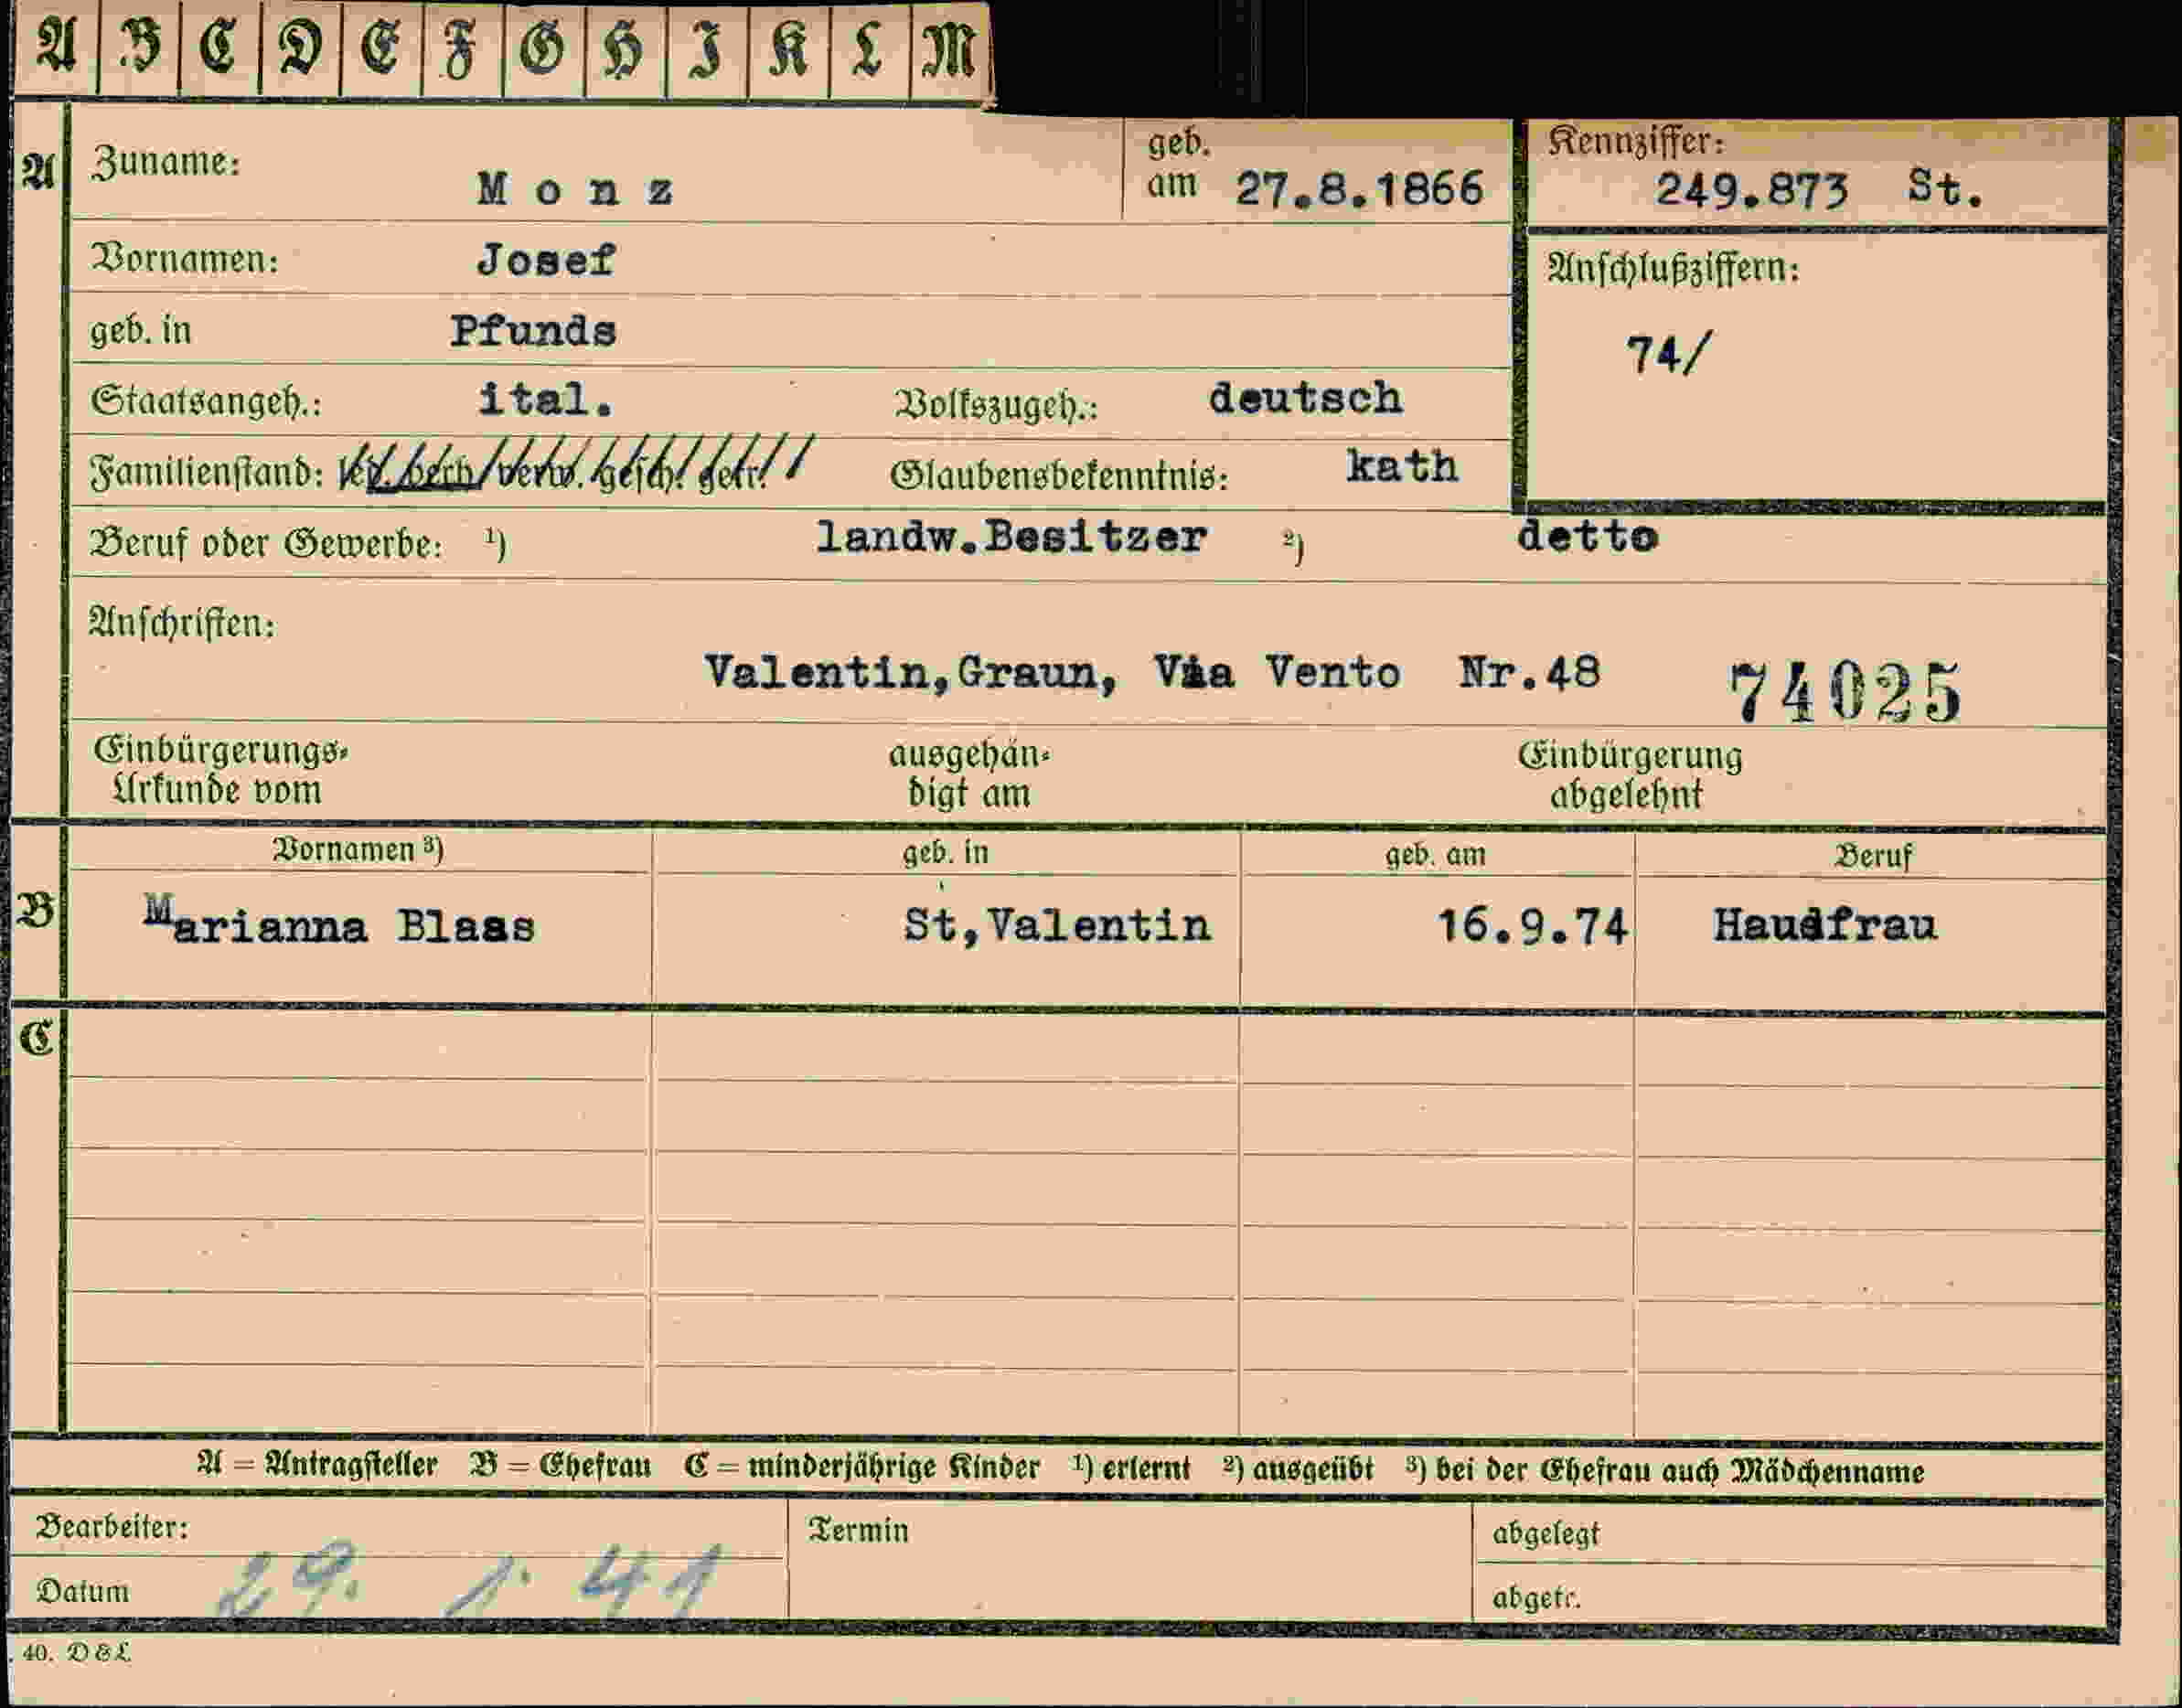 A B C D E F G H I K L M
A Zuname: Monz geb. am 27.8.1866 Kennziffer: 249.873 St.
Vornamen: Josef Anschlußziffern:
geb. in Pfunds 74/
Staatsangeh.: ital. Volkszugeh.: deutsch
Familienstand: led. verh. verw. gesch. getr. Glaubensbekenntnis: kath
Beruf oder Gewerbe: ¹) landw.Besitzer ²) detto
Anschriften:
Valentin,Graun, Via Vento Nr.48 74025
Einbürgerungs-
Urkunde vom
ausgehän-
digt am
Einbürgerung
abgelehnt
Vornamen ³) geb. in geb. am Beruf
B Marianna Blaas St,Valentin 16.9.74 Hausfrau
C
A = Antragsteller B = Ehefrau C = minderjährige Kinder ¹) erlernt ²) ausgeübt ³) bei der Ehefrau auch Mädchenname
Bearbeiter: Termin abgelegt
Datum 29. 1. 41 abgetr.
40. D&L